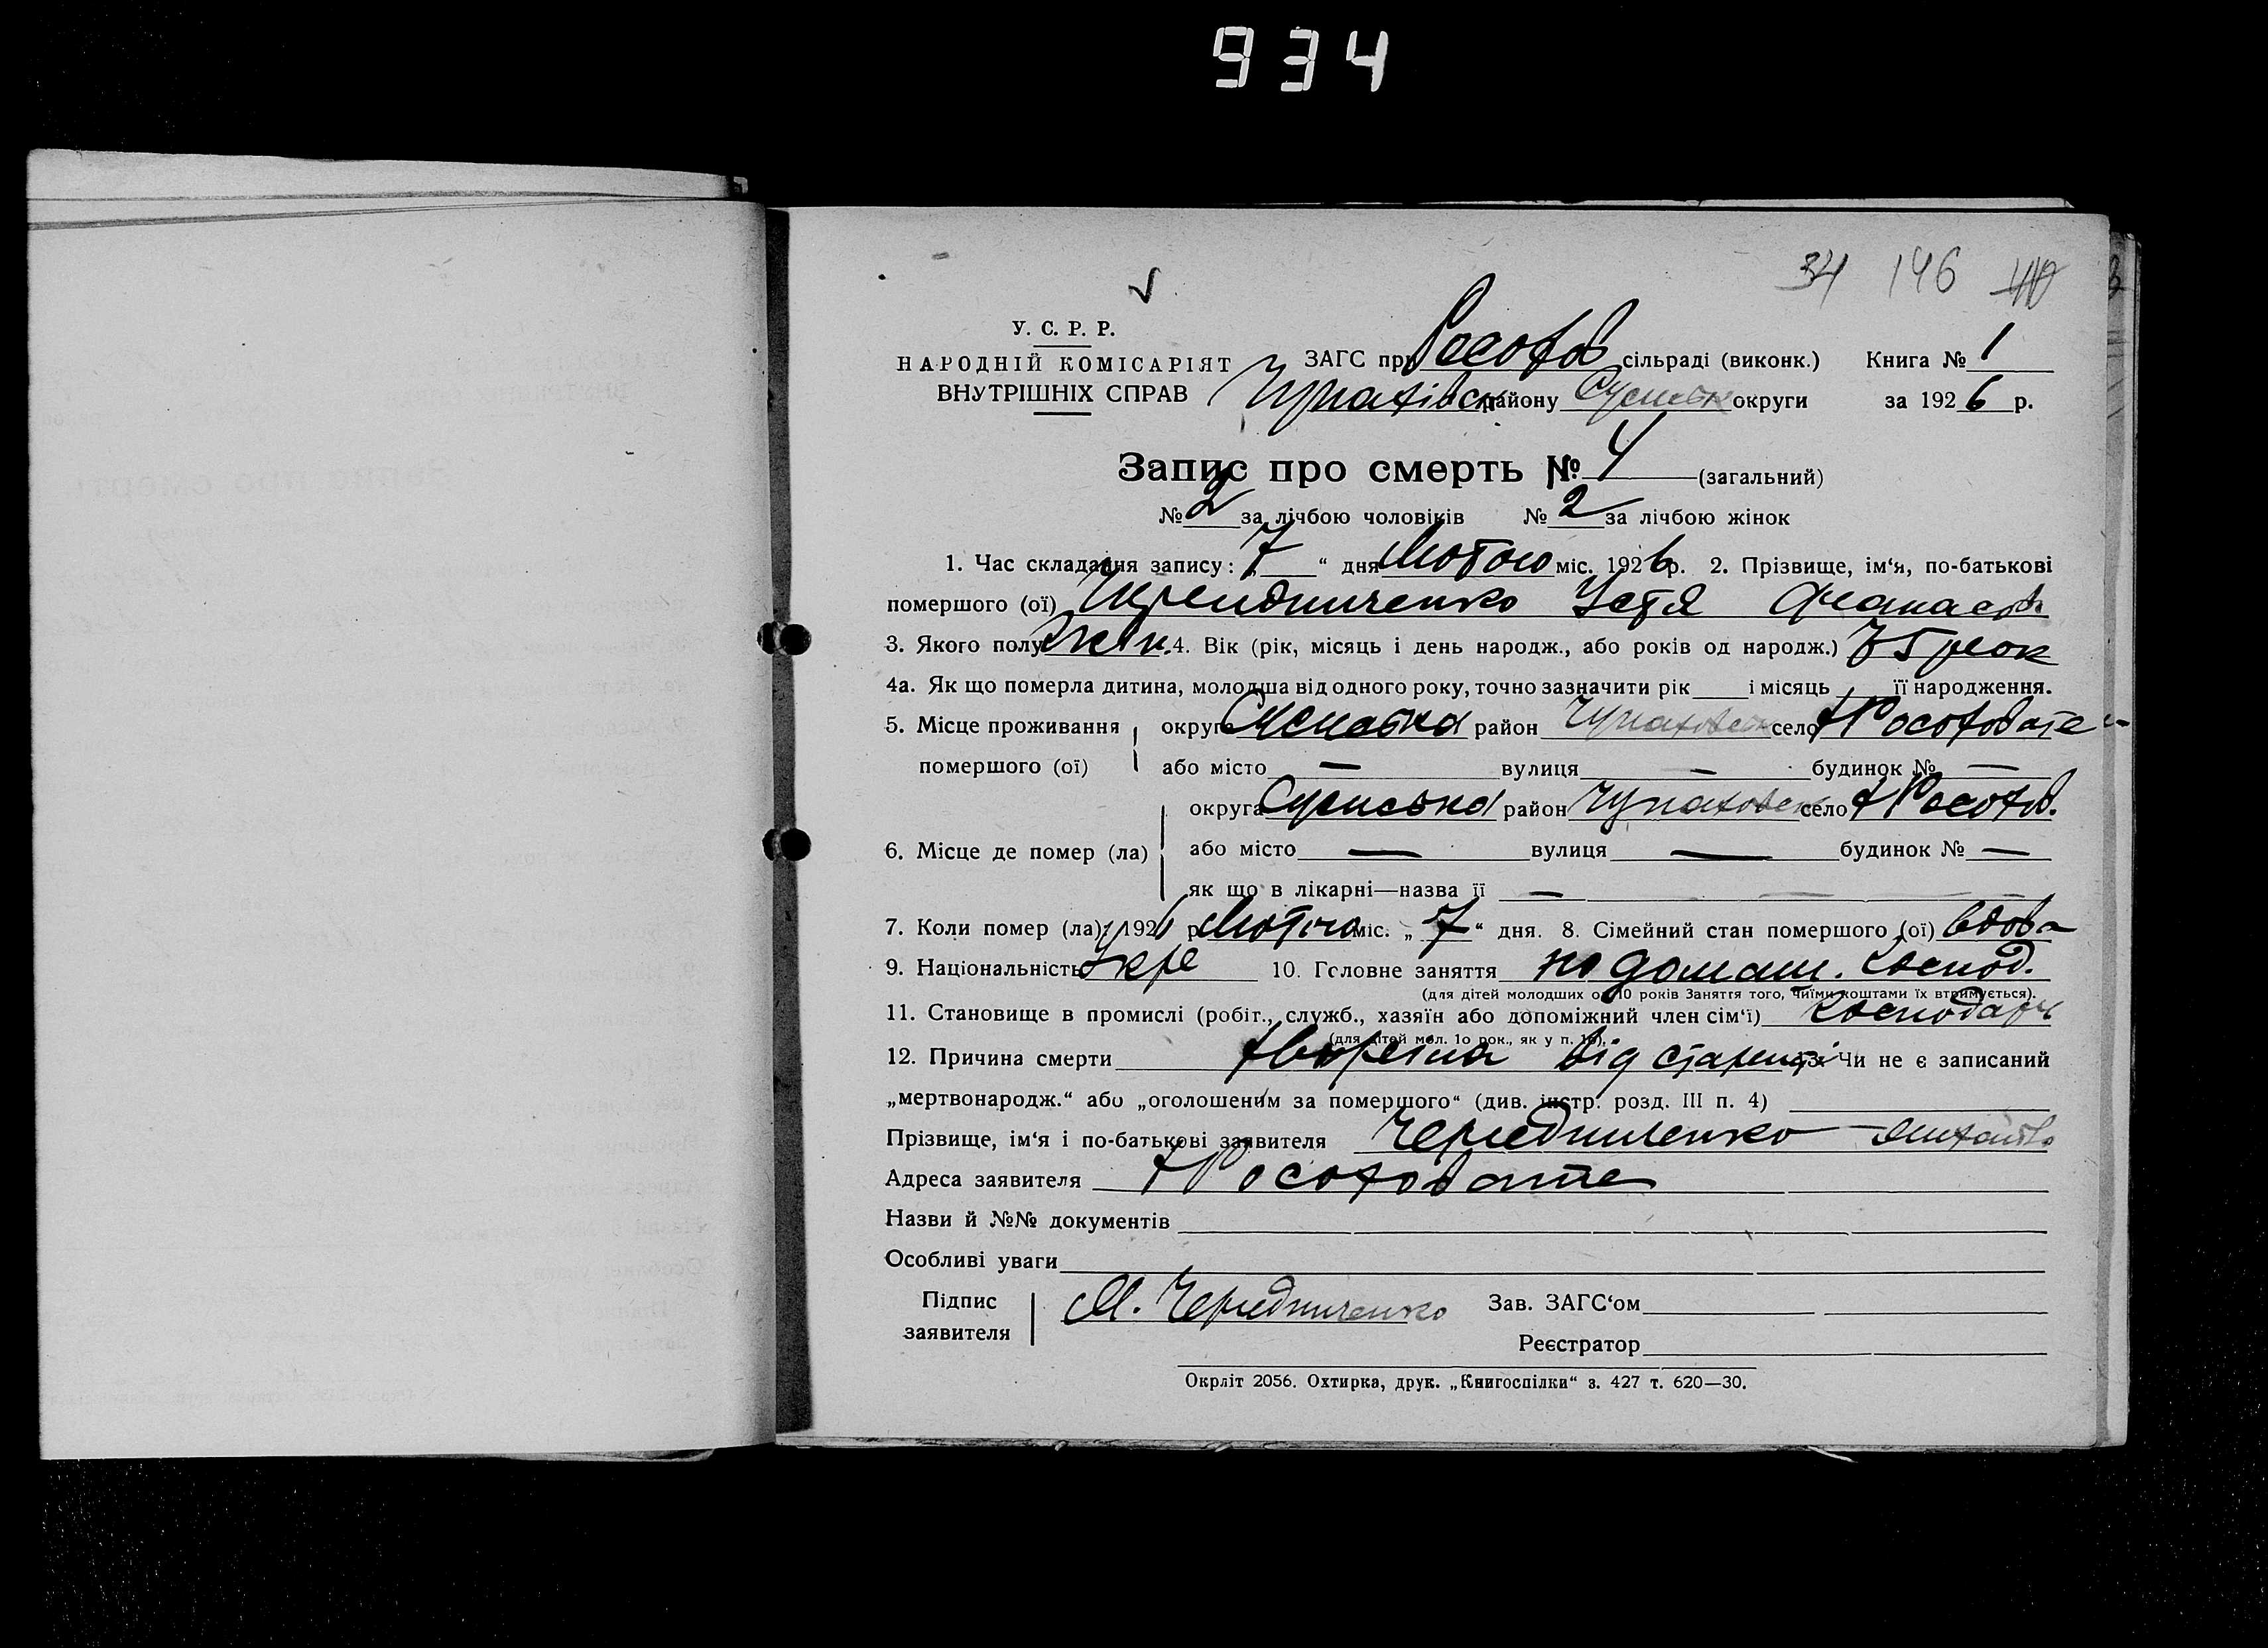 934
34 146
У. С. Р. Р.
НАРОДНІЙ КОМІСАРІЯТ
ВНУТРІШНІХ СПРАВ
ЗАГС при Росохов сільраді (виконк.) Книга № 1
Чупахівск району Сумськ округи за 1926 р.
Запис про смерть № 4 (загальний)
№ 2 за лічбою чоловіків № 2 за лічбою жінок
1. Час складання запису: „ 7 “ дня Лютого міс. 1926 р. 2. Прізвище, ім‘я, по-батькові
помершого (ої) Устя
3. Якого полу жін. 4. Вік (рік, місяць і день народж., або років од народж.) 75 рок
4а. Як що померла дитина, молодша від одного року, точно зазначити рік і місяць її народження.
5. Місце проживання округа Сумська район Чупаховськ село
помершого (ої) або місто — вулиця — будинок № —
округа Сумська район Чупаховск село
6. Місце де помер (ла) або місто — вулиця — будинок № —
як що в лікарні—назва її —
7. Коли помер (ла): 1926 р. Лютого міс. „ 7 “ дня. 8. Сімейний стан помершого (ої) вдова
9. Національність Укре 10. Головне заняття по домаш. господ.
(для дітей молодших од 10 років Заняття того, чиїми коштами їх втримується).
11. Становище в промислі (робіт., служб., хазяїн або допоміжний член сім‘ї) господарь
(для дітей мол. 10 рок., як у п. 10).
12. Причина смерти від старенції 13. Чи не є записаний
„мертвонародж.“ або „оголошеним за помершого“ (див. інстр. розд. III п. 4)
Прізвище, ім‘я і по-батькові заявителя Чередниченко
Адреса заявителя
Назви й №№ документів
Особливі уваги
Підпис
заявителя М. Чередниченко Зав. ЗАГС‘ом
Реєстратор
Окрліт 2056. Охтирка, друк. „Книгоспілки“ з. 427 т. 620—30.